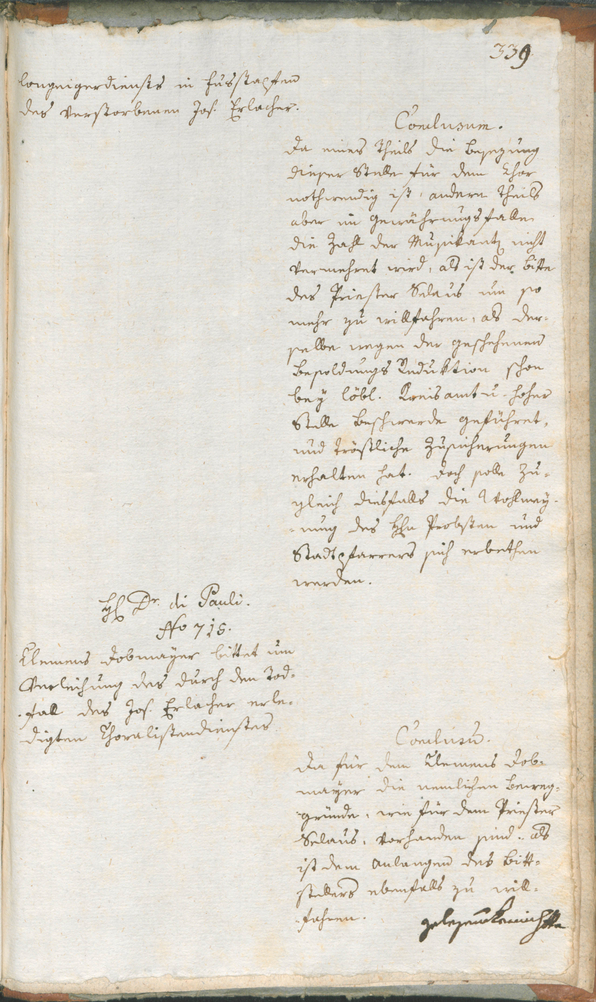 339
longeigerdiensts in Fusstapfen
des verstorbenen Jos. Erlacher.
Conclusum.
Da eines Theils die Besezung
dieser Stelle für dem Chor
nothwendig ist, andern Theils
aber im Gewährungsfalle
die Zahl der Musikantz nicht
vermehret wird, als ist der Bitte
des Priester Selaus um so
mehr zu willfahren, als der-
selbe wegen der geschehenen
Besoldungs Reduktion schon
bey löbl. Kreisamt u. hoher
Stelle Beschwerde geführet,
und tröstliche Zusicherungen
erhalten hat. Doch solle zu-
gleich diesfalls die Wohlmey-
nung des Hhn Probsten und
Stadtpfarrers sich erbethen
werden.
H Dr. di Pauli.
No 715.
Klemens Dobmayer bittet um
Verleihung des durch den Tod-
fall des Jos. Erlacher erle-
digten Choralistendienstes
Conclusum.
Da für dem Klemens Dob-
mayer die nemlichen Beweg-
gründe, wie für dem Priester
Selaus, vorhanden sind, als
ist dem Anlangen des Bitt-
stellers ebenfalls zu will-
fahren.